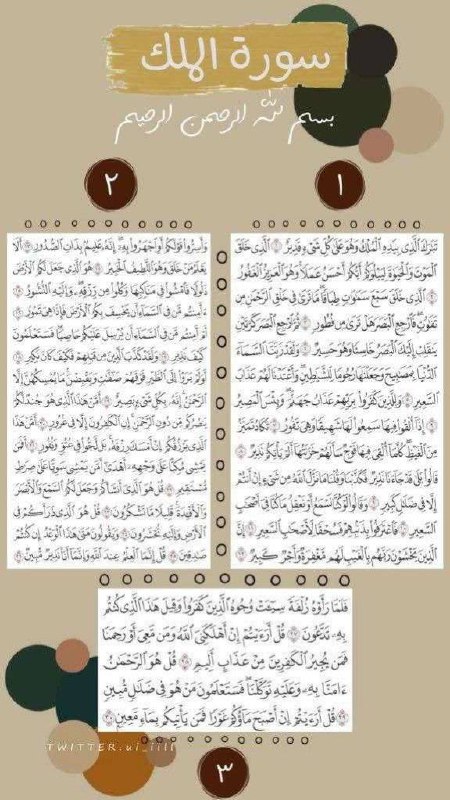 سورة الملك
بسم الله الرحمن الرحيم
١
تَبَٰرَكَ ٱلَّذِى بِيَدِهِ ٱلْمُلْكُ وَهُوَ عَلَىٰ كُلِّ شَىْءٍ قَدِيرٌ ٱلَّذِى خَلَقَ
ٱلْمَوْتَ وَٱلْحَيَوٰةَ لِيَبْلُوَكُمْ أَيُّكُمْ أَحْسَنُ عَمَلًا وَهُوَ ٱلْعَزِيزُ ٱلْغَفُورُ
ٱلَّذِى خَلَقَ سَبْعَ سَمَٰوَٰتٍ طِبَاقًا مَّا تَرَىٰ فِى خَلْقِ ٱلرَّحْمَٰنِ مِن
تَفَٰوُتٍ فَٱرْجِعِ ٱلْبَصَرَ هَلْ تَرَىٰ مِن فُطُورٍ ثُمَّ ٱرْجِعِ ٱلْبَصَرَ كَرَّتَيْنِ
يَنقَلِبْ إِلَيْكَ ٱلْبَصَرُ خَاسِئًا وَهُوَ حَسِيرٌ وَلَقَدْ زَيَّنَّا ٱلسَّمَآءَ
ٱلدُّنْيَا بِمَصَٰبِيحَ وَجَعَلْنَٰهَا رُجُومًا لِّلشَّيَٰطِينِ وَأَعْتَدْنَا لَهُمْ عَذَابَ
ٱلسَّعِيرِ وَلِلَّذِينَ كَفَرُوا۟ بِرَبِّهِمْ عَذَابُ جَهَنَّمَ وَبِئْسَ ٱلْمَصِيرُ
إِذَآ أُلْقُوا۟ فِيهَا سَمِعُوا۟ لَهَا شَهِيقًا وَهِىَ تَفُورُ تَكَادُ تَمَيَّزُ
مِنَ ٱلْغَيْظِ كُلَّمَآ أُلْقِىَ فِيهَا فَوْجٌ سَأَلَهُمْ خَزَنَتُهَآ أَلَمْ يَأْتِكُمْ نَذِيرٌ
قَالُوا۟ بَلَىٰ قَدْ جَآءَنَا نَذِيرٌ فَكَذَّبْنَا وَقُلْنَا مَا نَزَّلَ ٱللَّهُ مِن شَىْءٍ إِنْ أَنتُمْ
إِلَّا فِى ضَلَٰلٍ كَبِيرٍ وَقَالُوا۟ لَوْ كُنَّا نَسْمَعُ أَوْ نَعْقِلُ مَا كُنَّا فِىٓ أَصْحَٰبِ
ٱلسَّعِيرِ فَٱعْتَرَفُوا۟ بِذَنۢبِهِمْ فَسُحْقًا لِّأَصْحَٰبِ ٱلسَّعِيرِ إِنَّ
ٱلَّذِينَ يَخْشَوْنَ رَبَّهُم بِٱلْغَيْبِ لَهُم مَّغْفِرَةٌ وَأَجْرٌ كَبِيرٌ
٢
وَأَسِرُّوا۟ قَوْلَكُمْ أَوِ ٱجْهَرُوا۟ بِهِۦٓ إِنَّهُۥ عَلِيمٌۢ بِذَاتِ ٱلصُّدُورِ أَلَا
يَعْلَمُ مَنْ خَلَقَ وَهُوَ ٱللَّطِيفُ ٱلْخَبِيرُ هُوَ ٱلَّذِى جَعَلَ لَكُمُ ٱلْأَرْضَ
ذَلُولًا فَٱمْشُوا۟ فِى مَنَاكِبِهَا وَكُلُوا۟ مِن رِّزْقِهِۦ وَإِلَيْهِ ٱلنُّشُورُ
ءَأَمِنتُم مَّن فِى ٱلسَّمَآءِ أَن يَخْسِفَ بِكُمُ ٱلْأَرْضَ فَإِذَا هِىَ تَمُورُ
أَمْ أَمِنتُم مَّن فِى ٱلسَّمَآءِ أَن يُرْسِلَ عَلَيْكُمْ حَاصِبًا فَسَتَعْلَمُونَ
كَيْفَ نَذِيرِ وَلَقَدْ كَذَّبَ ٱلَّذِينَ مِن قَبْلِهِمْ فَكَيْفَ كَانَ نَكِيرِ
أَوَلَمْ يَرَوْا۟ إِلَى ٱلطَّيْرِ فَوْقَهُمْ صَٰٓفَّٰتٍ وَيَقْبِضْنَ مَا يُمْسِكُهُنَّ إِلَّا
ٱلرَّحْمَٰنُ إِنَّهُۥ بِكُلِّ شَىْءٍۭ بَصِيرٌ أَمَّنْ هَٰذَا ٱلَّذِى هُوَ جُندٌ لَّكُمْ
يَنصُرُكُم مِّن دُونِ ٱلرَّحْمَٰنِ إِنِ ٱلْكَٰفِرُونَ إِلَّا فِى غُرُورٍ أَمَّنْ هَٰذَا
ٱلَّذِى يَرْزُقُكُمْ إِنْ أَمْسَكَ رِزْقَهُۥ بَل لَّجُّوا۟ فِى عُتُوٍّ وَنُفُورٍ أَفَمَن
يَمْشِى مُكِبًّا عَلَىٰ وَجْهِهِۦٓ أَهْدَىٰٓ أَمَّن يَمْشِى سَوِيًّا عَلَىٰ صِرَٰطٍ
مُّسْتَقِيمٍ قُلْ هُوَ ٱلَّذِىٓ أَنشَأَكُمْ وَجَعَلَ لَكُمُ ٱلسَّمْعَ وَٱلْأَبْصَٰرَ
وَٱلْأَفْـِٔدَةَ قَلِيلًا مَّا تَشْكُرُونَ قُلْ هُوَ ٱلَّذِى ذَرَأَكُمْ فِى
ٱلْأَرْضِ وَإِلَيْهِ تُحْشَرُونَ وَيَقُولُونَ مَتَىٰ هَٰذَا ٱلْوَعْدُ إِن كُنتُمْ
صَٰدِقِينَ قُلْ إِنَّمَا ٱلْعِلْمُ عِندَ ٱللَّهِ وَإِنَّمَآ أَنَا۠ نَذِيرٌ مُّبِينٌ
فَلَمَّا رَأَوْهُ زُلْفَةً سِيٓـَٔتْ وُجُوهُ ٱلَّذِينَ كَفَرُوا۟ وَقِيلَ هَٰذَا ٱلَّذِى كُنتُم
بِهِۦ تَدَّعُونَ قُلْ أَرَءَيْتُمْ إِنْ أَهْلَكَنِىَ ٱللَّهُ وَمَن مَّعِىَ أَوْ رَحِمَنَا
فَمَن يُجِيرُ ٱلْكَٰفِرِينَ مِنْ عَذَابٍ أَلِيمٍ قُلْ هُوَ ٱلرَّحْمَٰنُ
ءَامَنَّا بِهِۦ وَعَلَيْهِ تَوَكَّلْنَا فَسَتَعْلَمُونَ مَنْ هُوَ فِى ضَلَٰلٍ مُّبِينٍ
قُلْ أَرَءَيْتُمْ إِنْ أَصْبَحَ مَآؤُكُمْ غَوْرًا فَمَن يَأْتِيكُم بِمَآءٍ مَّعِينٍۭ
٣
TWITTER.ui_iill